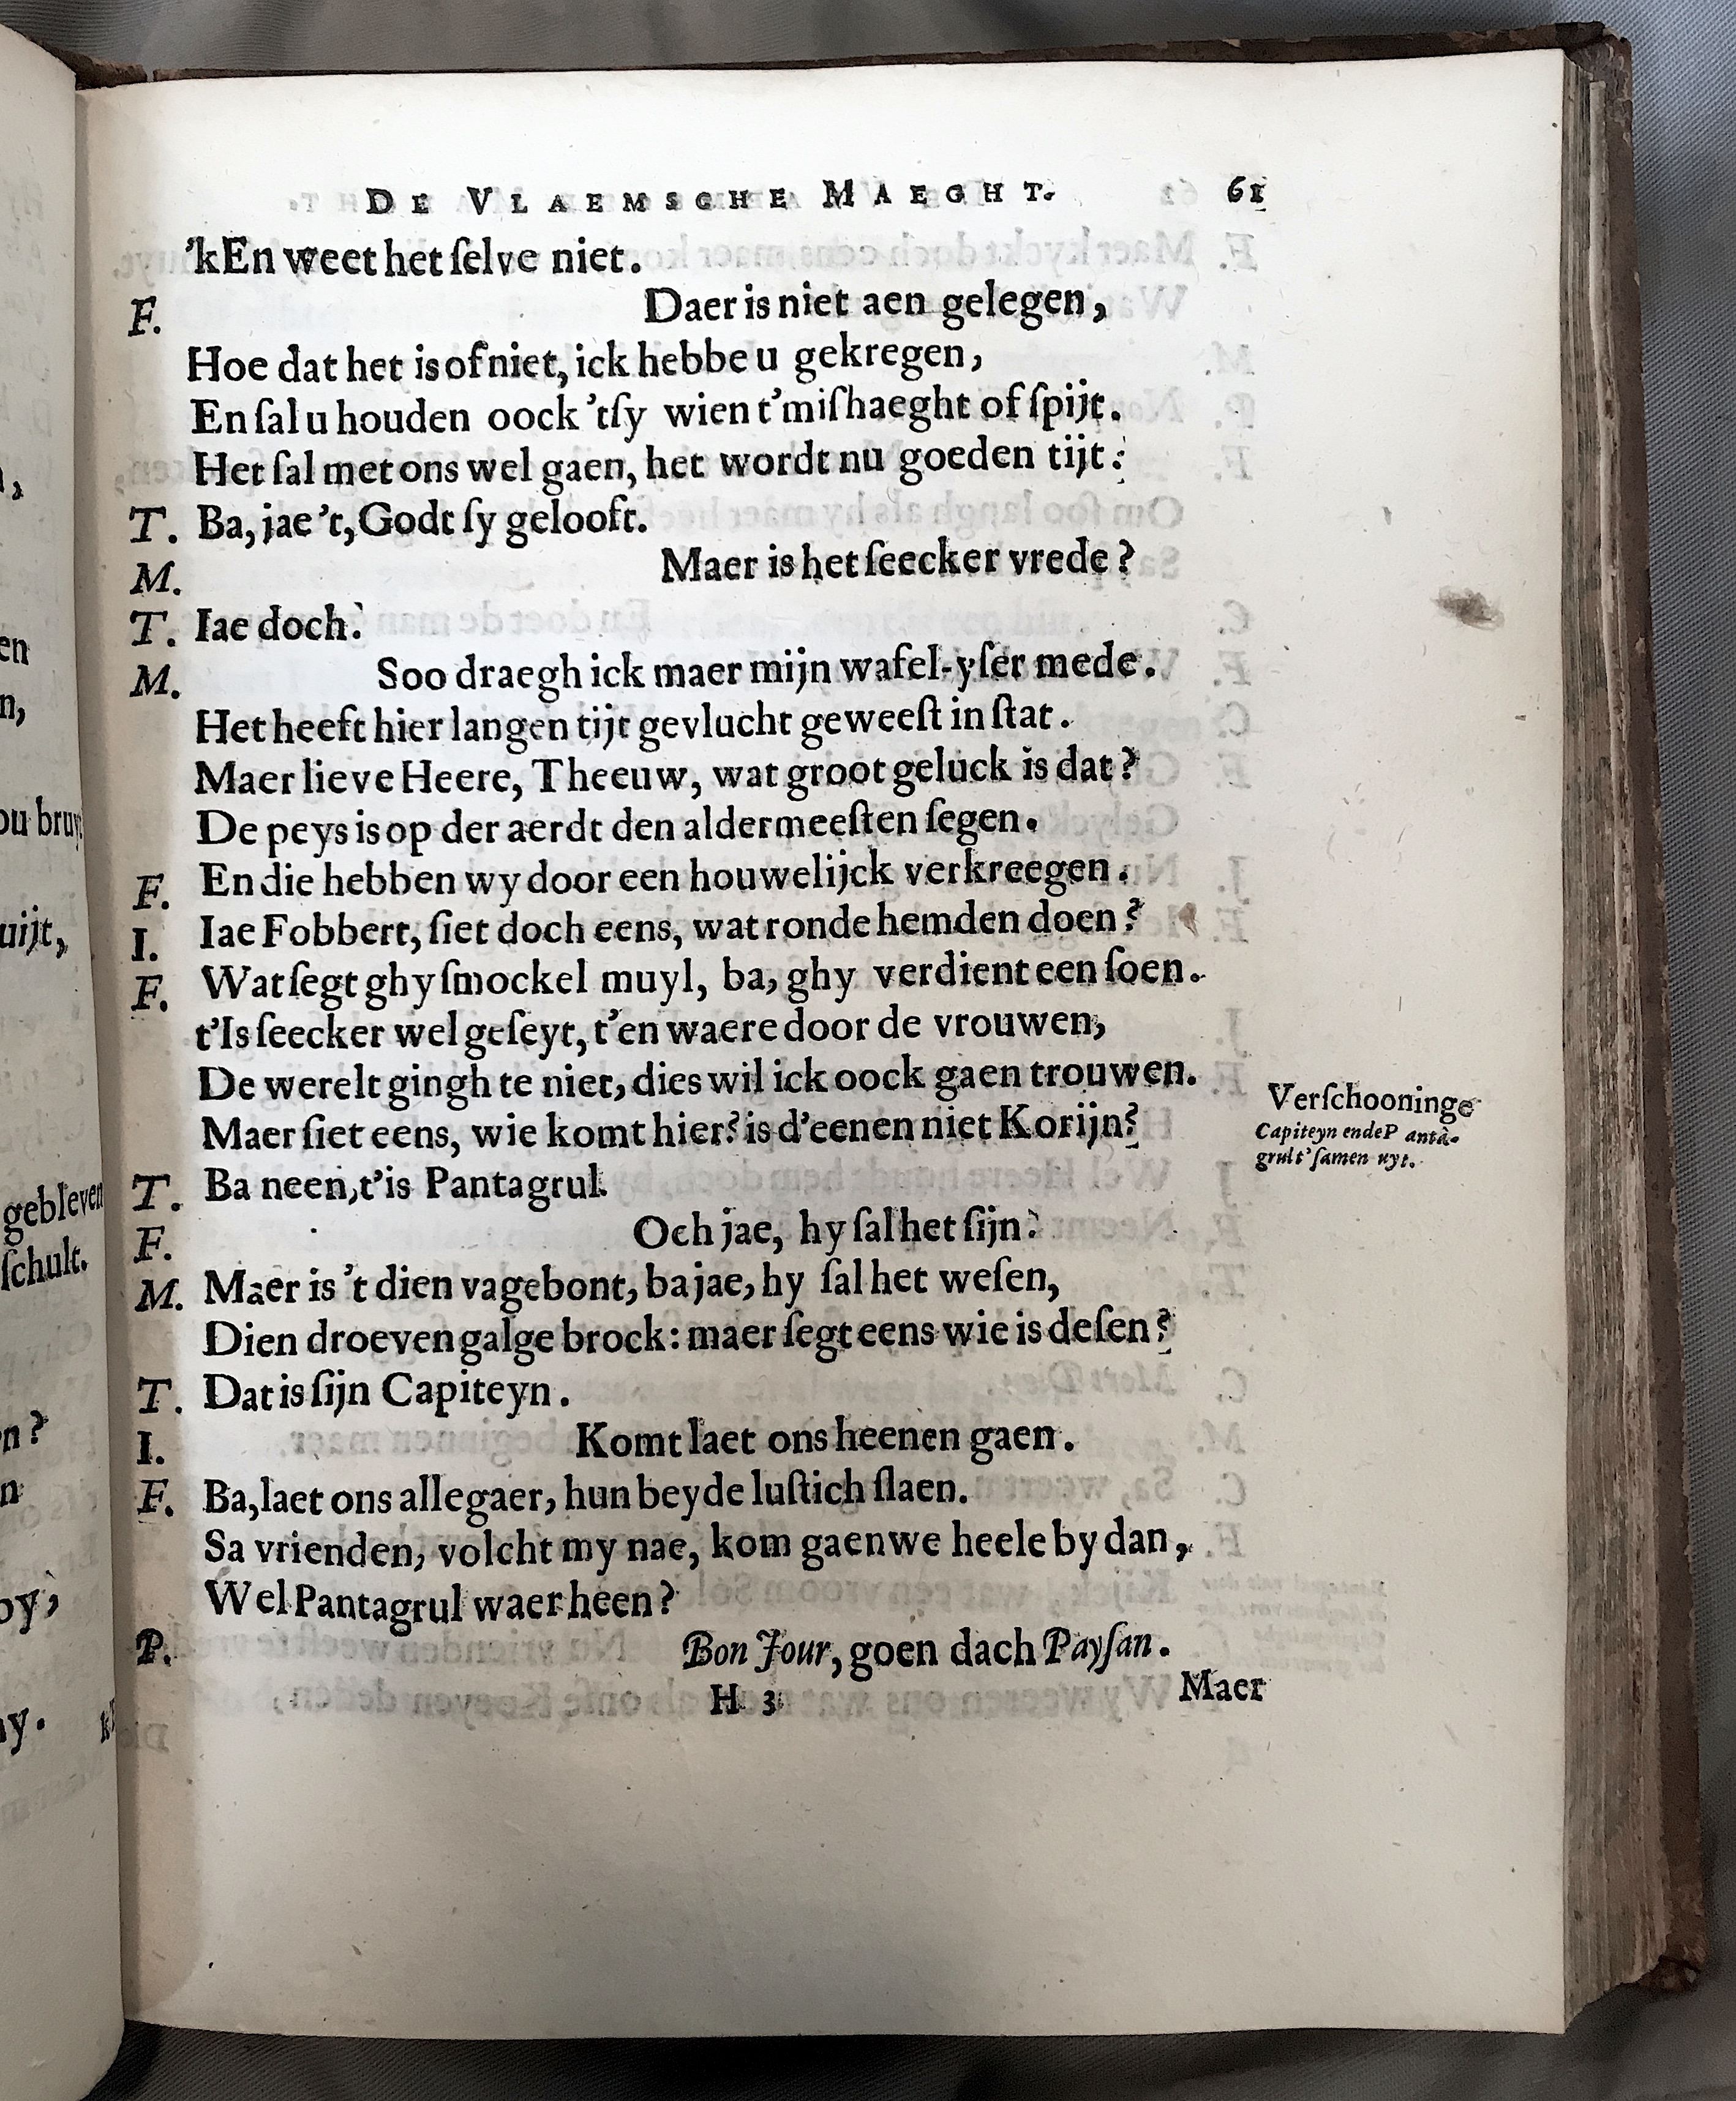 DE VLAEMSCHE MAEGHT. 61
'kEn weet het ſelve niet.
F. Daer is niet aen gelegen,
Hoe dat het is of niet, ick hebbe u gekregen,
En ſal u houden oock 'tſy wien t'miſhaeght of ſpijt.
Het ſal met ons wel gaen, het wordt nu goeden tijt:
T. Ba, jae 't, Godt ſy gelooft.
M. Maer is het ſeecker vrede?
T. Iae doch.
M. Soo draegh ick maer mijn wafel-yſer mede.
Het heeft hier langen tijt gevlucht geweeſt in ſtat.
Maer lieve Heere, Theeuw, wat groot geluck is dat?
De peys is op der aerdt den aldermeeſten ſegen.
F. En die hebben wy door een houwelijck verkreegen.
I. Iae Fobbert, ſiet doch eens, wat ronde hemden doen?
F. Wat ſegt ghy ſmockel muyl, ba, ghy verdient een ſoen.
t'Is ſeecker wel geſeyt, t'en waere door de vrouwen,
De werelt gingh te niet, dies wil ick oock gaen trouwen.
Maer ſiet eens, wie komt hier? is d'eenen niet Korijn?
Verſchooninge
Capiteyn ende Panta-
grul t'ſamen uyt.
T. Ba neen, t'is Pantagrul.
F. Och jae, hy ſal het ſijn?
M. Maer is 't dien vagebont, ba jae, hy ſal het weſen,
Dien droeven galge brock: maer ſegt eens wie is deſen?
T. Dat is ſijn Capiteyn.
I. Komt laet ons heenen gaen.
F. Ba, laet ons allegaer, hun beyde luſtich ſlaen.
Sa vrienden, volcht my nae, kom gaen we heele by dan,
Wel Pantagrul waer heen?
P. Bon Jour, goen dach Payſan.
H 3 Maer